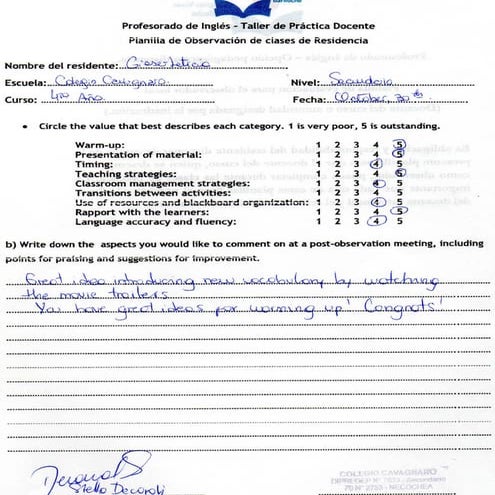 Profesorado de Inglés - Taller de Práctica Docente
Planilla de Observación de clases de Residencia
Nombre del residente: Gieser Leticia
Escuela: Colegio Cavagnaro Nivel: Secundario
Curso: 4to Año Fecha: October, 30th
• Circle the value that best describes each category. 1 is very poor, 5 is outstanding.
Warm-up: 1 2 3 4 5
Presentation of material: 1 2 3 4 5
Timing: 1 2 3 4 5
Teaching strategies: 1 2 3 4 5
Classroom management strategies: 1 2 3 4 5
Transitions between activities: 1 2 3 4 5
Use of resources and blackboard organization: 1 2 3 4 5
Rapport with the learners: 1 2 3 4 5
Language accuracy and fluency: 1 2 3 4 5
b) Write down the aspects you would like to comment on at a post-observation meeting, including
points for praising and suggestions for improvement.
Great idea introducing new vocabulary by watching
the movie trailers.
You have great ideas for warming up! Congrats!
Stella Decaroli
COLEGIO CAVAGNARO
NECOCHEA